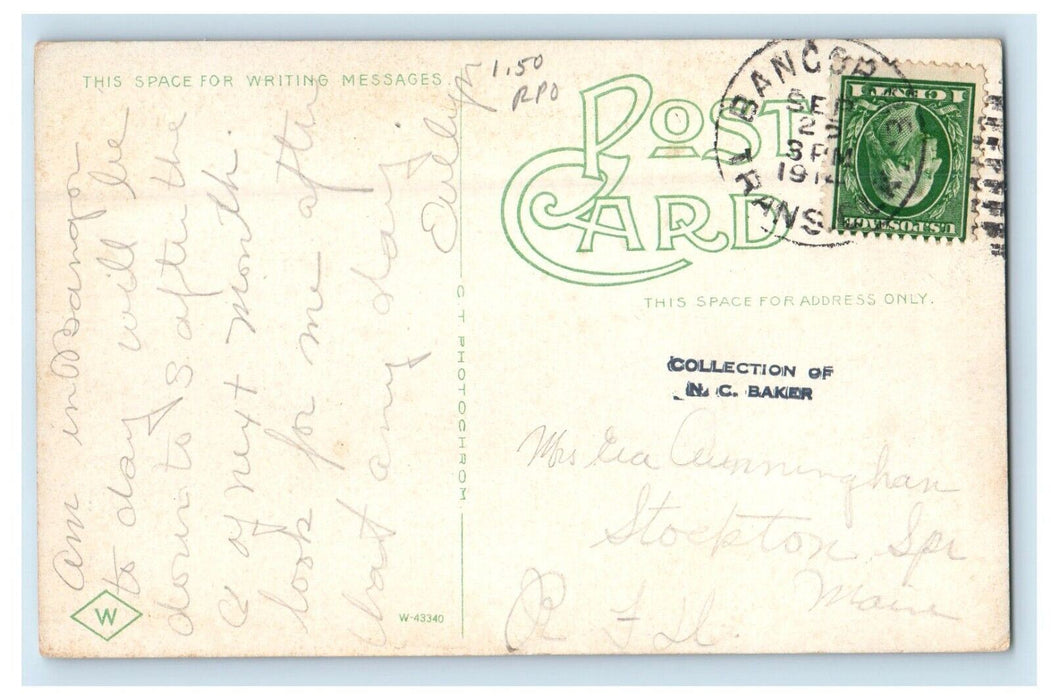 THIS SPACE FOR WRITING MESSAGES
1.50
RPO
POST
CARD
BANGOR
SEP
3 PM
191
TRANS.
1 CENT 1
U.S. POSTAGE
THIS SPACE FOR ADDRESS ONLY.
COLLECTION OF
N. C. BAKER
Am in Bangor
to day will be
down to S after the
of next month
look for me after
that any day
Evelyn
C T PHOTOCHROM
Mrs Cunninghan
Stockton Spr
Maine
R F D.
W
W-43340